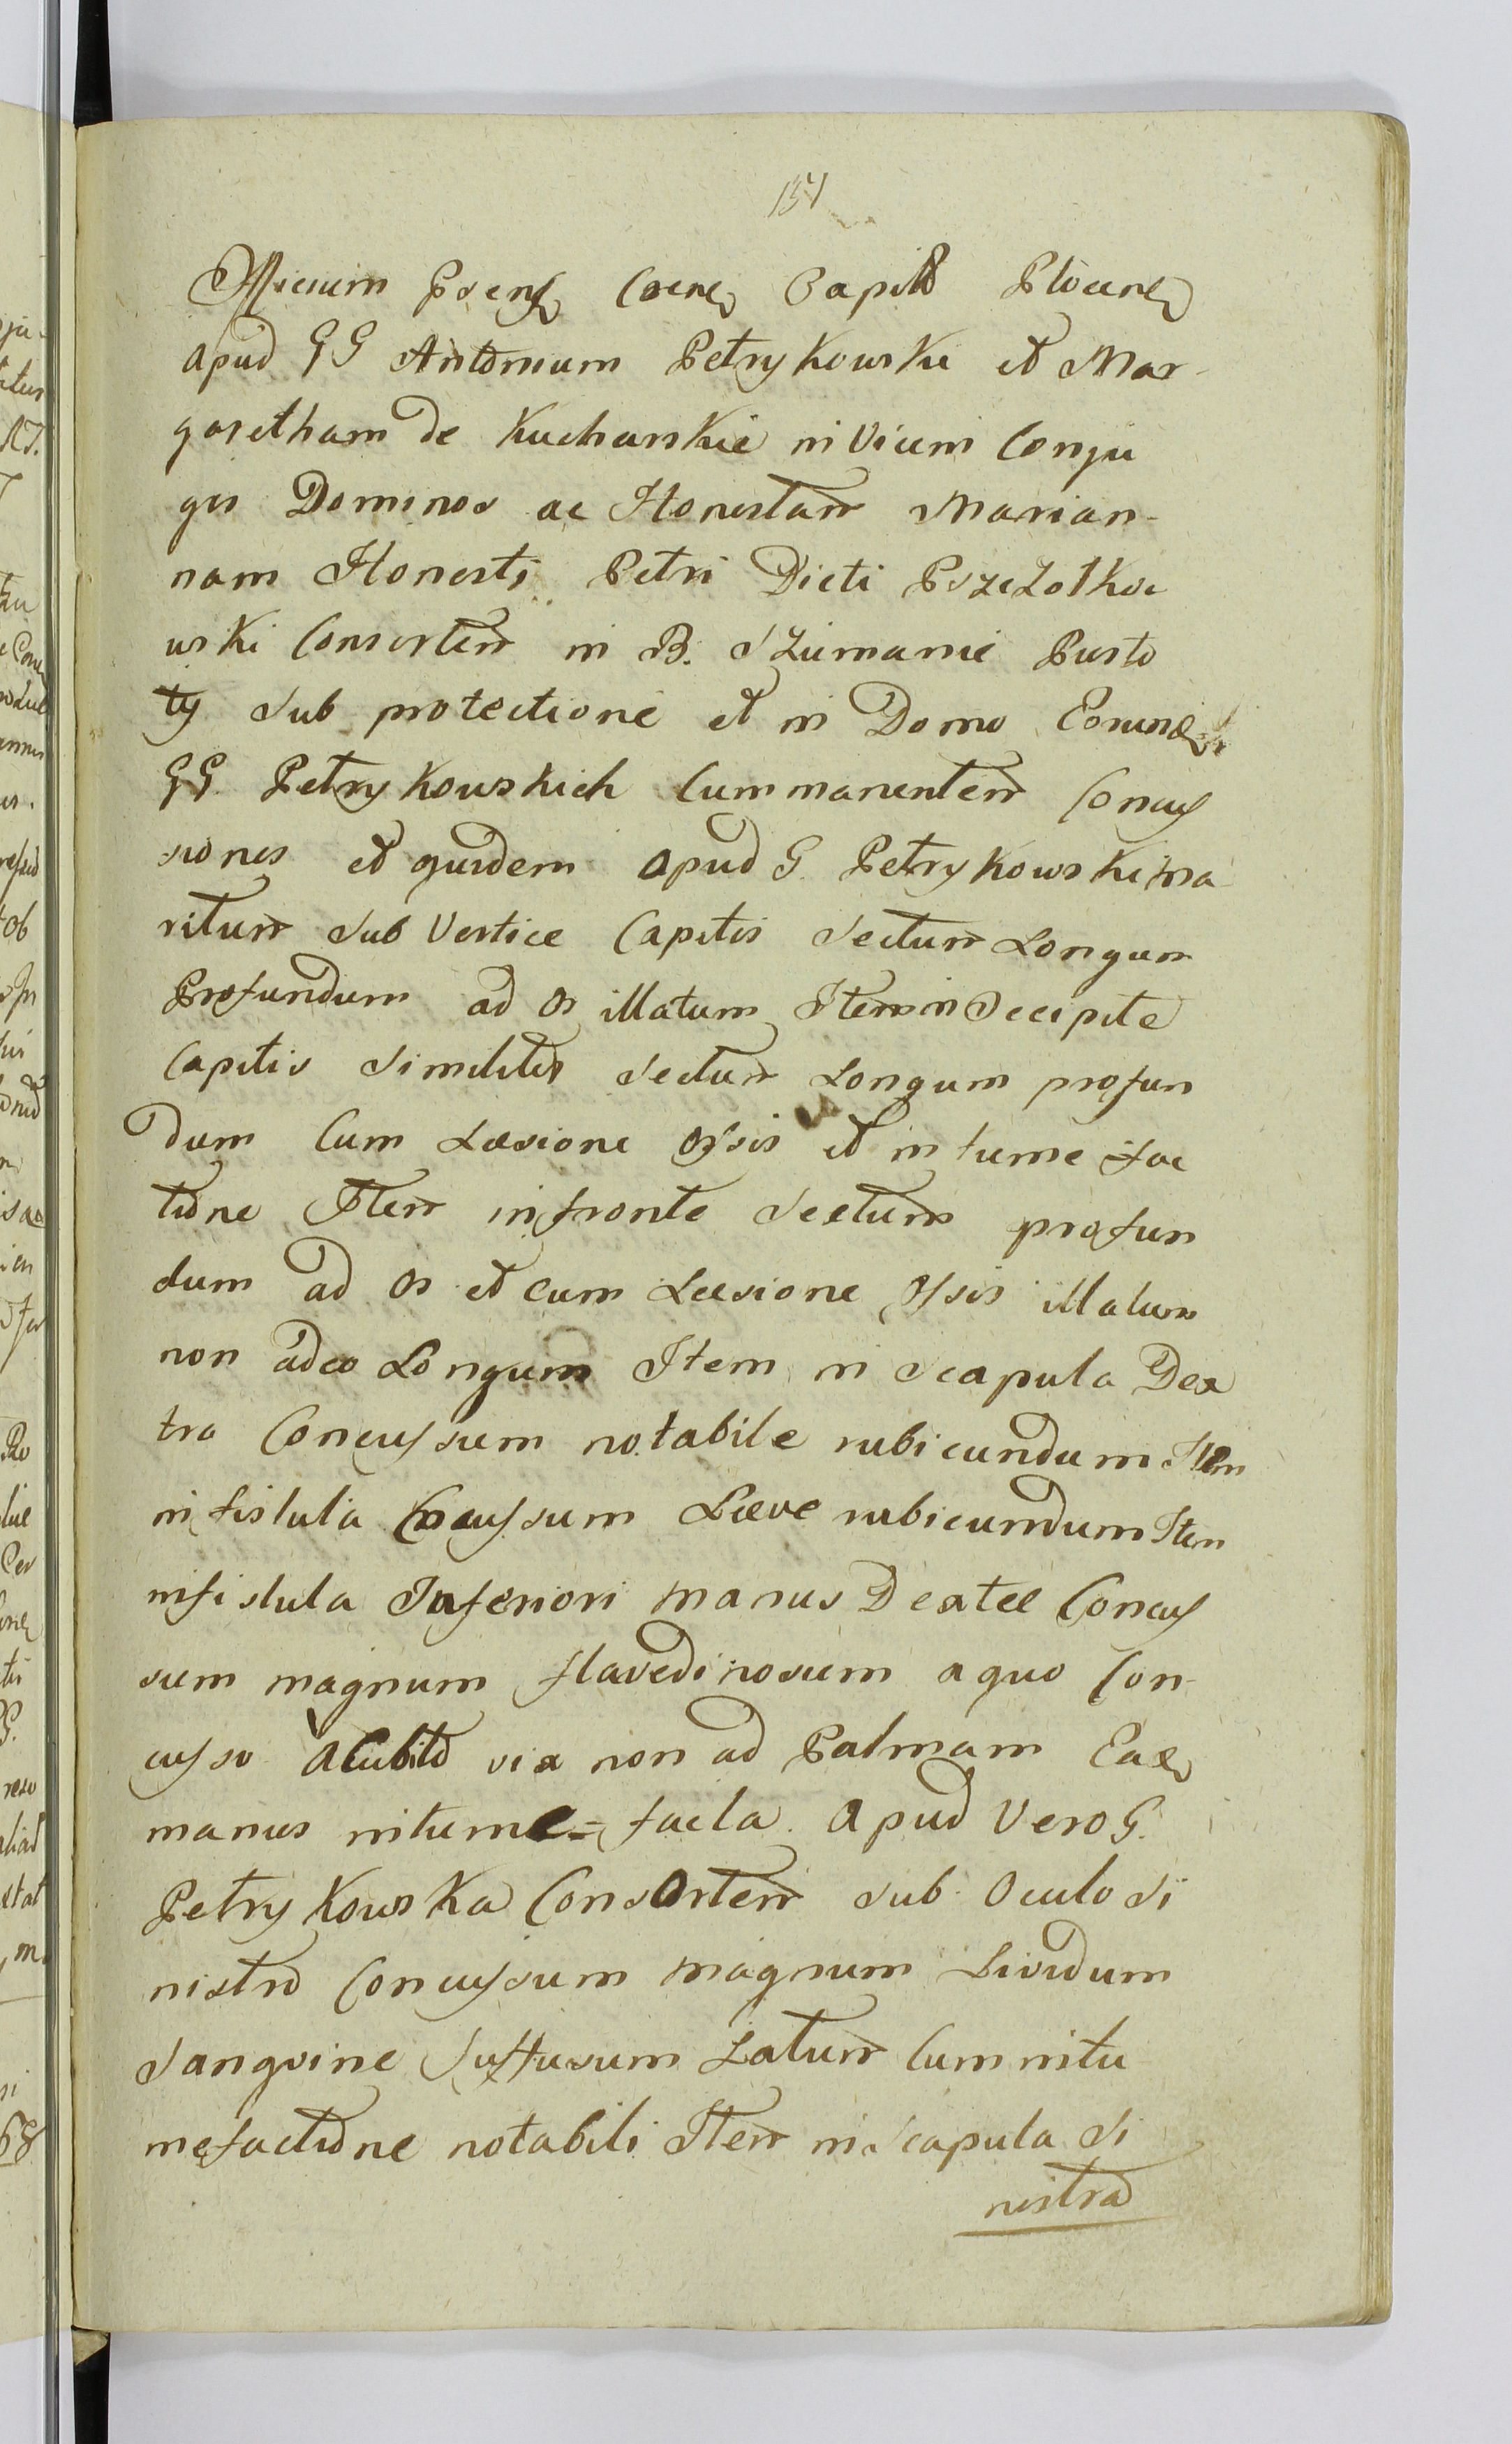 151
Officium Praens Crense Capitle Plocense
apud GG Antonium Petrykowski et Mar-
garetham de Kucharskie in Vicem Conju
ges Dominos ac Honestam Marian-
nam Honesti Petri Dicti Pszczolkow
wski Consortem in B. Szumanie Pusto
ty sub protectione et in Domo Eorund
GG. Petrykowskich Cummanentem Concus
siones et quidem apud G. Petrykowski ma
ritum sub Vertice Capitis Sectum Longum
Profundum ad os illatum Item in Occipite
Capitis Similiter Sectum Longum profun
dum Cum Læsione ossis et in tume fac
tione Item in fronte Sectum profun
dum ad os et cum Læsione ossis illatum
non adeo Longum Item in Scapula Dex
tra Concussum notabile rubicundum Item
in fistula Concussum Læve rubicundum Item
in fistula Inferiori manus Dextræ Concus
sum magnum flavedinosum a quo Con-
cusso a Cubito vix non ad Palmam Ead
manus intume= facta. Apud Vero G.
Petrykowska Consortem sub Oculo Si
nistro Concussum magnum Lividum
Sangvine Suffusum Latum Cum intu
mefactione notabili Item in Scapula Si
nistra